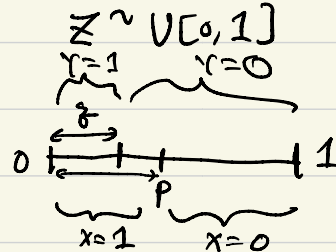 Z ~ U[0,1]
Y=1 Y=0
q
0 1
P
X=1 X=0